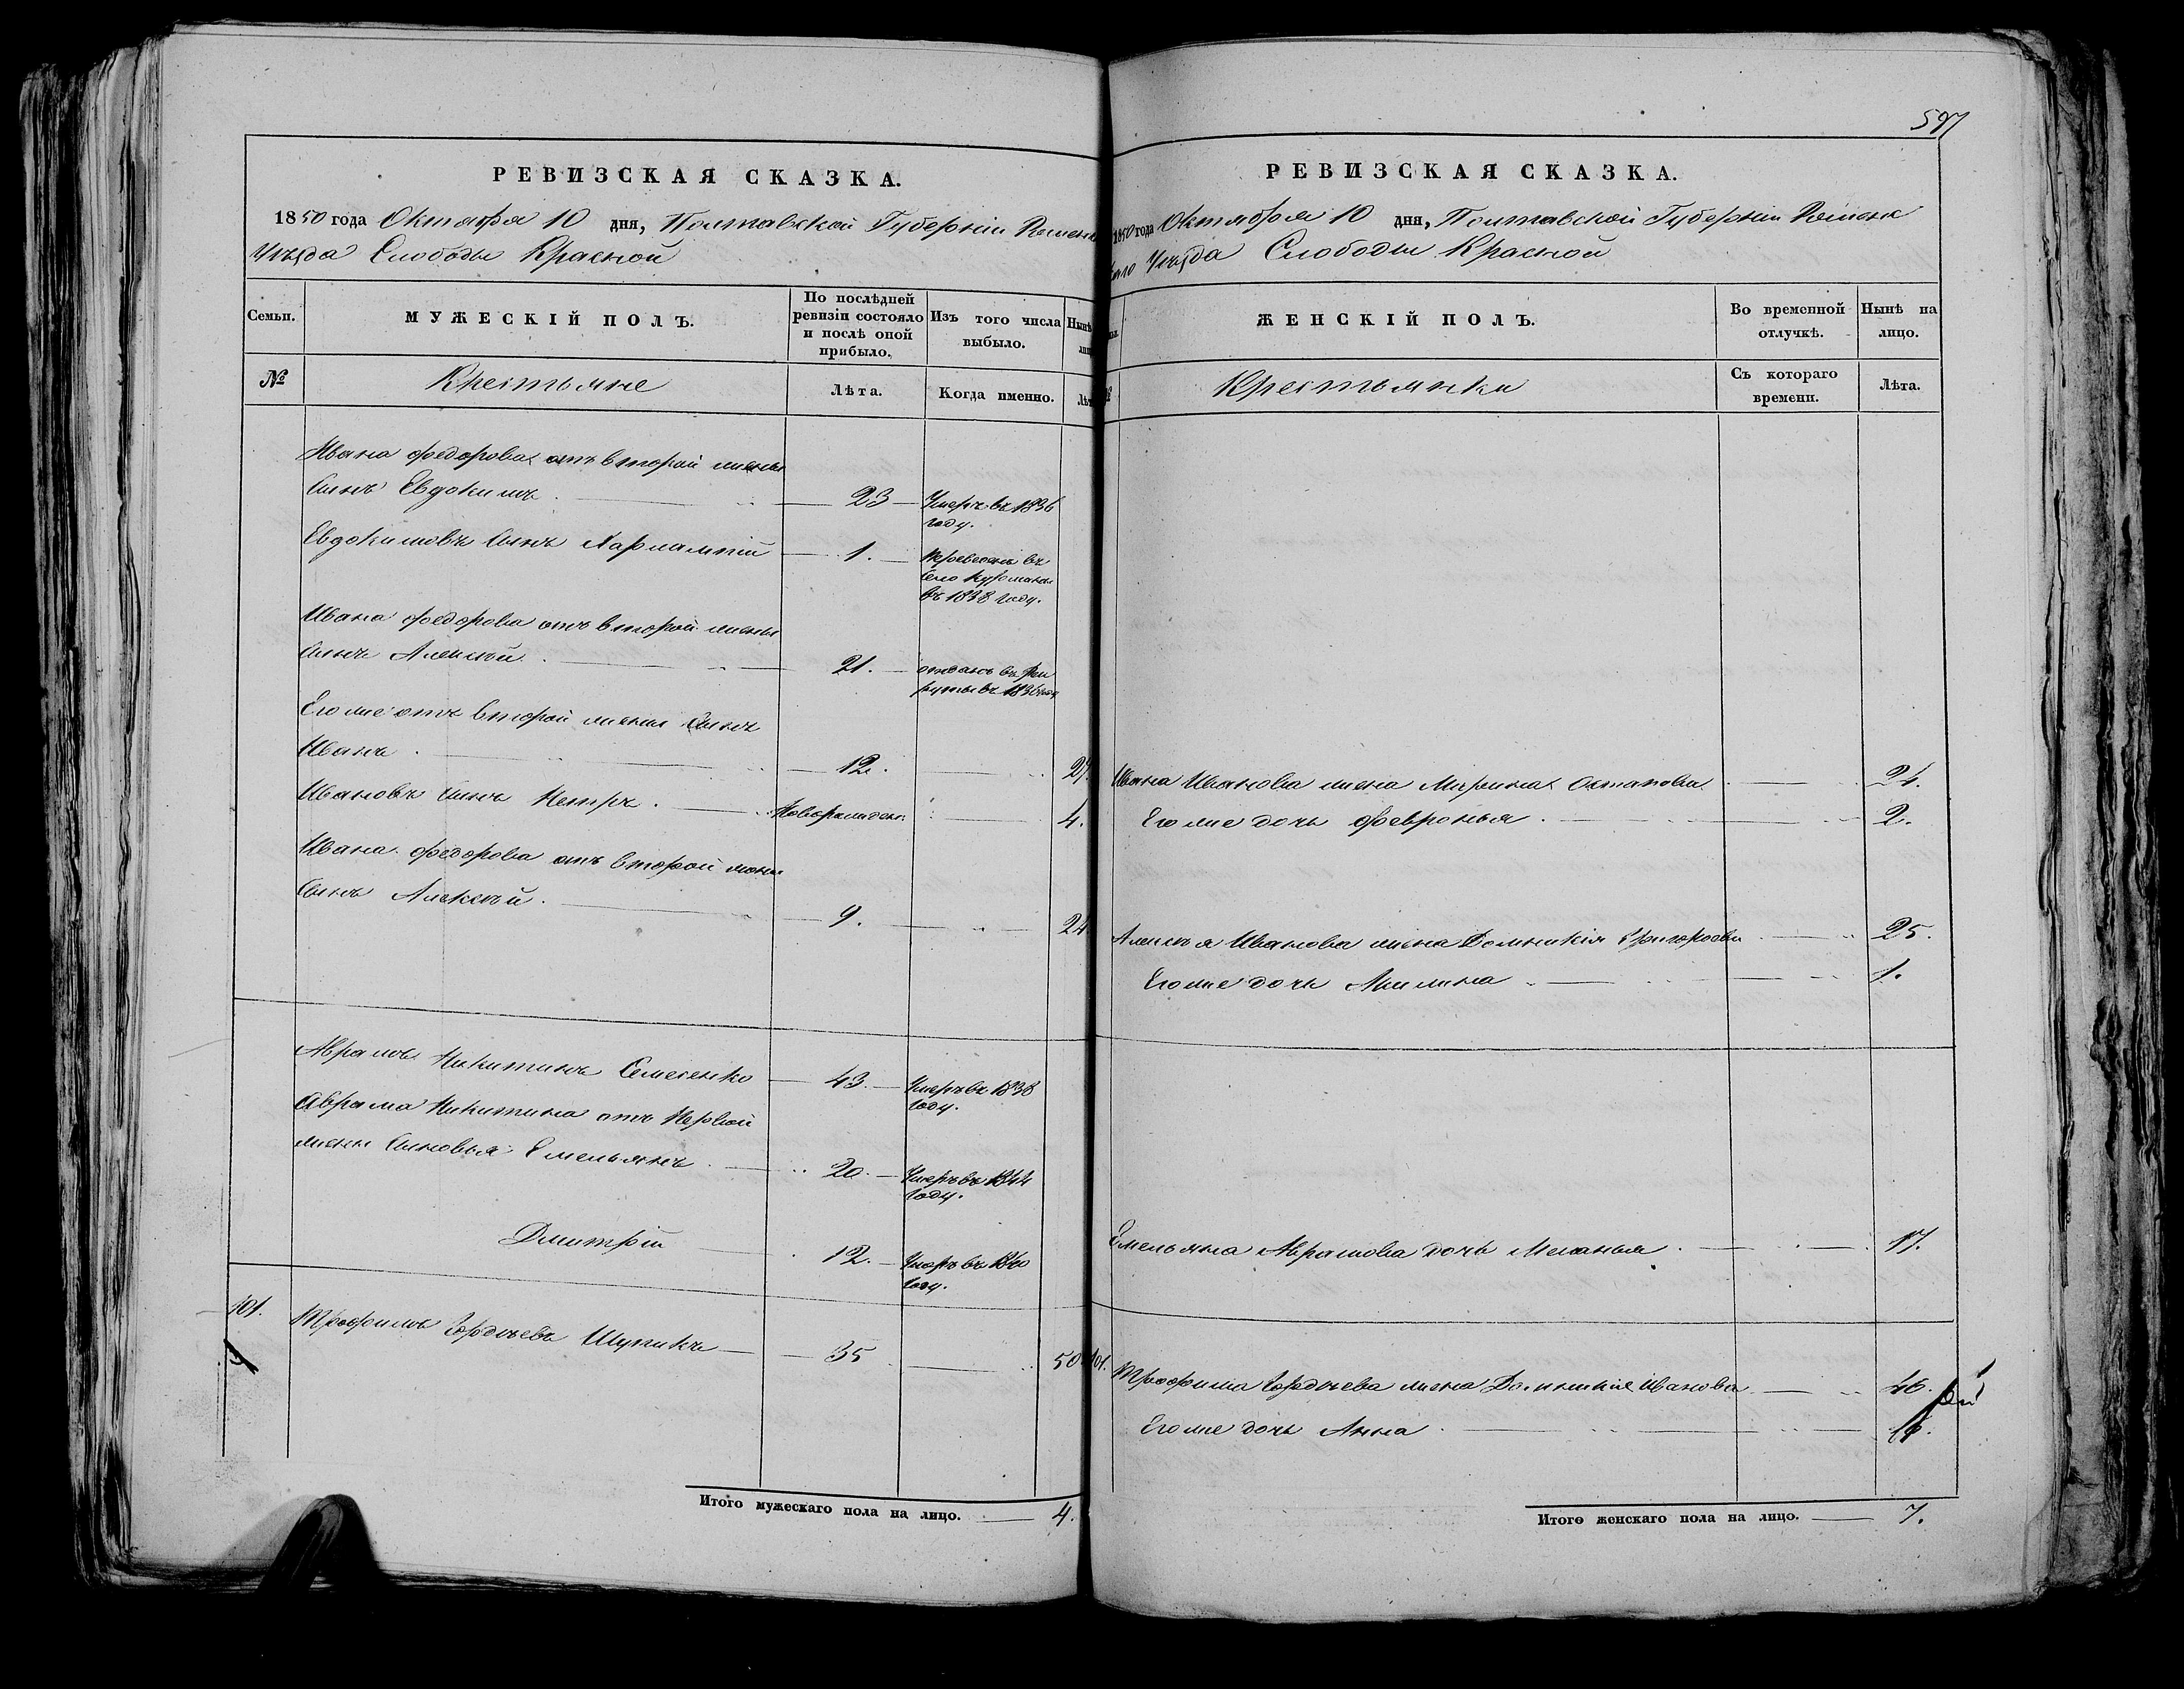 РЕВИЗСКАЯ СКАЗКА.
1850 года Октября 10 дня, Полтавской Губерніи
Уѣзда Слободы Красной
Семьи.
МУЖЕСКІЙ ПОЛЪ.
По послѣдней ревизіи состояло и послѣ оной прибыло.
Изъ того числа выбыло.
№
Крестьяне
Лѣта.
Когда именно.
Ивана Федорова отъ второй жены
Сынъ Евдокимъ 23 Умеръ въ 1836
году.
Евдокимовъ Сынъ Харлампій 1. въ
село
въ 1838 году.
Ивана Федорова отъ второй жены
Сынъ Алексѣй 21. отданъ въ рек
руты въ
Его же отъ второй жены Сынъ
Иванъ 12. 27.
Ивановъ Сынъ Петръ. Новорожден. 4.
Ивана Федорова отъ второй жены
Сынъ Алексѣй. 9. 24
Аврамъ Никитинъ Семененко 43. Умеръ въ 1838
году.
Аврама Никитина отъ первой
жены Сыновья Емельянъ 20. Умеръ въ 1844
году.
Дмитрій 12. Умеръ въ 1840
году.
101. Трофимъ Гордѣевъ Шупикъ 35 50
1
Итого мужескаго пола на лицо. 4.
597
РЕВИЗСКАЯ СКАЗКА.
1850 года Октября 10 дня, Полтавской Губерніи Роменс
каго Уѣзда Слободы Красной
ЖЕНСКІЙ ПОЛЪ.
Во временной отлучкѣ.
Нынѣ на лицо.
Крестьянки
Съ котораго времени.
Лѣта.
Ивана Иванова жена Марина Остапова 24.
Его же дочь Февронья 2.
Алексѣя Иванова жена Домникія Григорьева 25.
Его же дочь Акилина 1.
Емельяна Аврамова дочь Меланья 17.
101. Трофима Гордѣева жена Домникія Иванова 46.
Его же дочь Анна
Итого женскаго пола на лицо. 7.